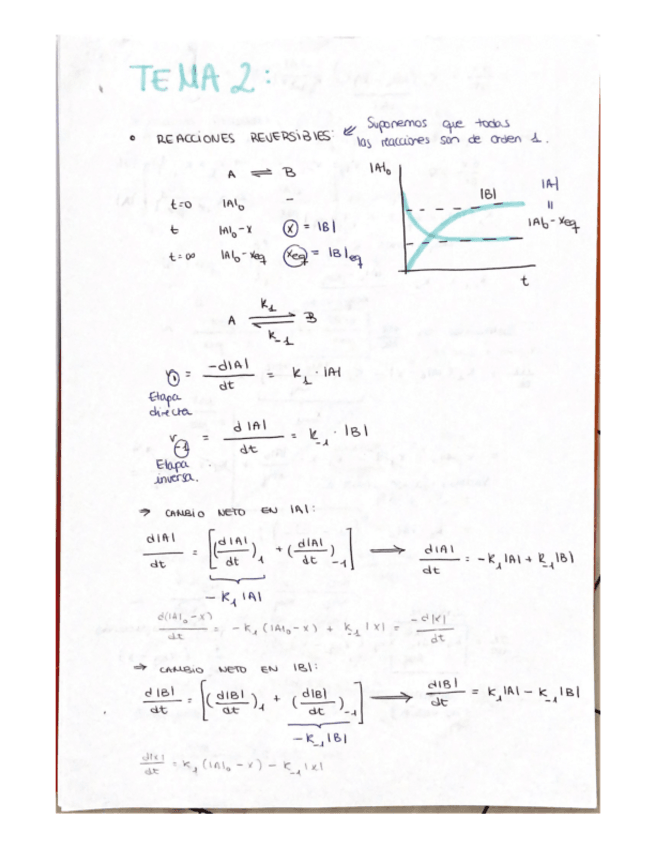 TEMA 2:
• REACCIONES REVERSIBLES: ⇙ Suponemos que todas
las reacciones son de orden 1.
A ⇌ B
t=0 |A|₀ -
t |A|₀-x x = |B|
t=∞ |A|₀-xeq xeq = |B|eq
|A|₀
|B|
|A|
=
|A|₀-xeq
t
A ⇌ B
K₁
K₋₁
r₁ = -d|A|/dt = K₁ · |A|
Etapa
directa
r₋₁ = d|A|/dt = K₋₁ · |B|
Etapa
inversa.
→ CAMBIO NETO EN |A|:
d|A|/dt = [(d|A|/dt)₁ + (d|A|/dt)₋₁] ⟶ d|A|/dt = -K₁|A| + K₋₁|B|
-K₁|A|
d(|A|₀-x)/dt = -K₁(|A|₀-x) + K₋₁|x| = -d|x|/dt
→ CAMBIO NETO EN |B|:
d|B|/dt = [(d|B|/dt)₁ + (d|B|/dt)₋₁] ⟶ d|B|/dt = K₁|A| - K₋₁|B|
-K₋₁|B|
d|x|/dt = K₁(|A|₀-x) - K₋₁|x|